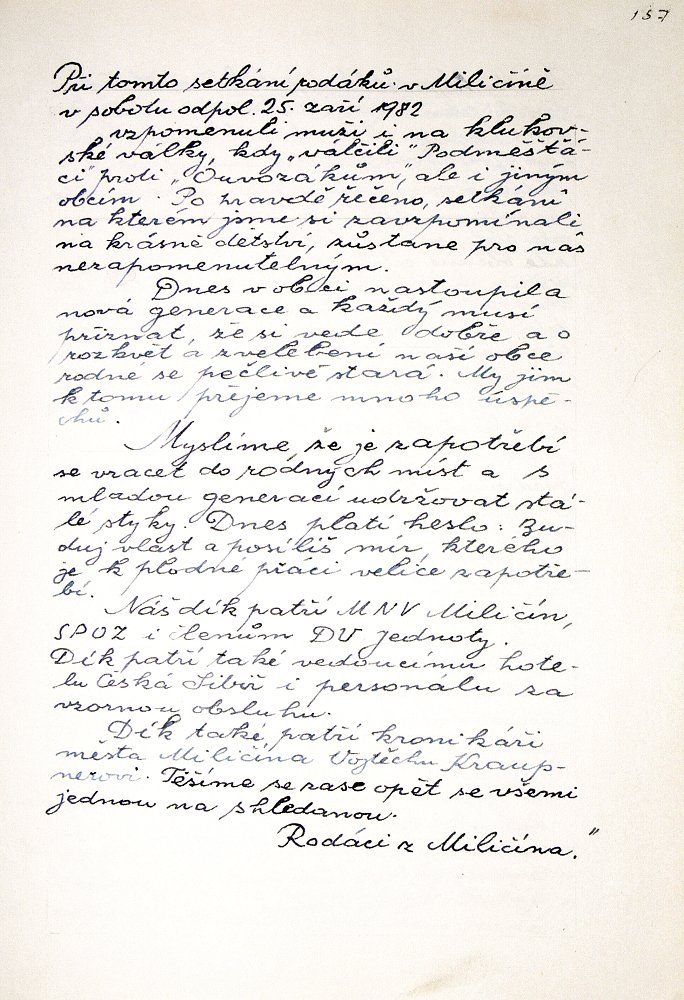 157
Při tomto setkání rodáků v Miličíně
v sobotu odpol. 25. září 1982
vzpomenuli muži i na klukov-
ské války, kdy „válčili" Podměšťá-
ci" proti „Ouvozákům", ale i jiným
obcím. Po pravdě řečeno, setkání
na kterém jsme si zavzpomínali
na krásné dětství, zůstane pro nás
nezapomenutelným.
Dnes v obci nastoupila
nová generace a každý musí
přiznat, že si vede dobře a o
rozkvět a zvelebení naší obce
rodné se pečlivě stará. My jim
k tomu přejeme mnoho úspě-
chů.
Myslíme, že je zapotřebí
se vracet do rodných míst a s
mladou generací udržovat stá-
lé styky. Dnes platí heslo: Bu-
duj vlast a posílíš mír, kterého
je k plodné práci velice zapotře-
bí.
Náš dík patří MNV Miličín,
SPOZ i členům DV Jednoty.
Dík patří také vedoucímu hote-
lu Česká Sibiř i personálu za
vzornou obsluhu.
Dík také patří kronikáři
města Miličína Vojtěchu Kraup-
nerovi. Těšíme se zase opět se všemi
jednou na shledanou.
Rodáci z Miličína."